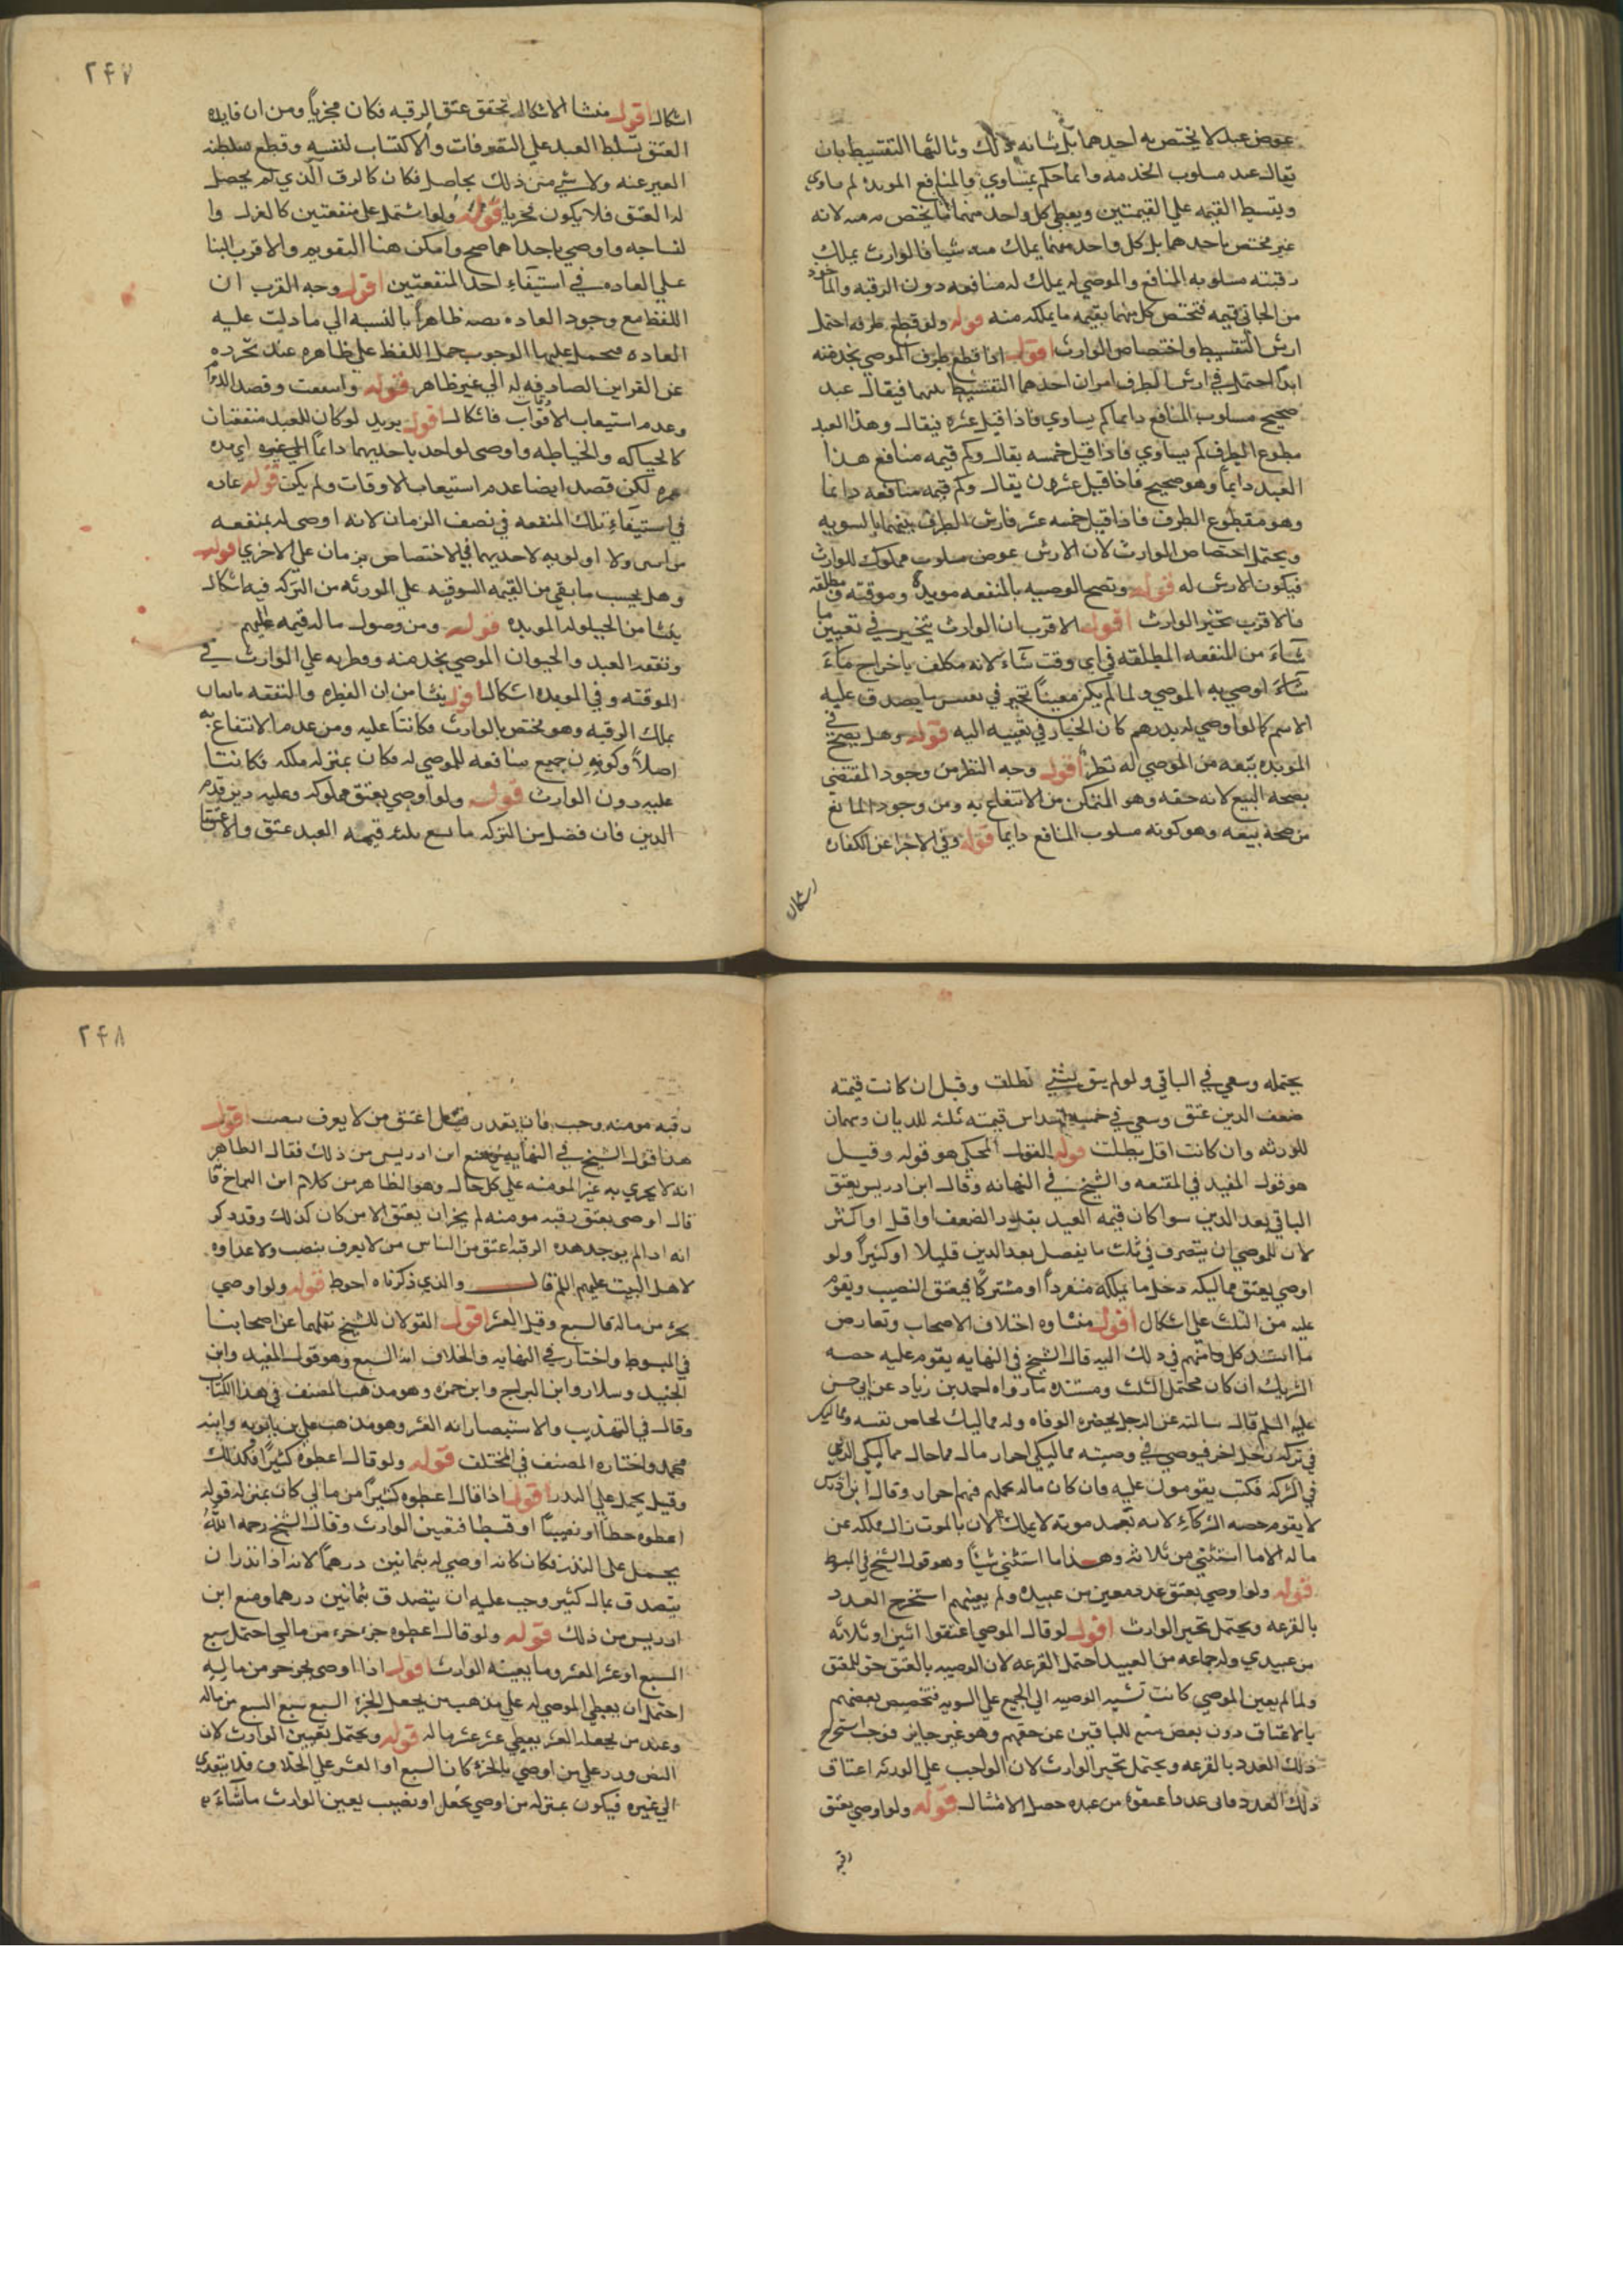 عوض عبد لا يختص به احدهما بل شانه كذلك وثالثها التقسيط بان
يقال عبد مسلوب الخدمه دايما حكم يساوي والمنافع الموبده لم ساوي
ويقسط القيمه علي القيمتين ويعطي كل واحد منهما ما يختص به لانه
غير مختص باحدهما بل كل واحد منهما يملك منه شيا فالوارث يملك
رقبته مسلوبه المنافع والموصي له يملك له منافعه دون الرقبه والماخوذ
من الجاني قيمه فتختص كل منهما بقيمه ما يملكه منه قوله ولو قطع طرفه احتمل
ارش التقسيط واختصاص الوارث اقول اذا قطع طرف الموصي بخدمته
ابدا احتمل في ارش الطرف امران احدهما التقسيط بينهما فيقال عبد
صحيح مسلوب المنافع دايما كم يساوي فاذا قيل عشره فيقال وهذا العبد
مقطوع الطرف كم يساوي فاذا قيل خمسه يقال وكم قيمه منافع هذا
العبد دايماً وهو صحيح فاذا قيل عشرون يقال وكم قيمه منافعه دايما
وهو مقطوع الطرف فاذا قيل خمسه عشر فارش الطرف بينهما بالسويه
ويحتمل اختصاص الوارث لان الارش عوض مسلوب مملوك للوارث
فيكون الارش له قوله وتصح الوصيه بالمنفعه موبده وموقته ومطلقه
فالاقرب تخير الوارث اقول الاقرب ان الوارث يتخير في تعيين ما
شاء من المنفعه المطلقه في اي وقت شاء لانه مكلف باخراج ماء
شاء اوصي به الموصي ولما لم يكن معيناً تخير في تعيين ما يصدق عليه
الاسم كما لو اوصي له بدرهم كان الخيار في تعيينه اليه قوله وهل يصح في
الموبده بيعه من الموصي له نظر اقول وجه النظر من وجود المقتضي
بصحه البيع لانه حقه وهو المتمكن من الانتفاع به ومن وجود المانع
من صحة بيعه وهو كونه مسلوب المنافع دايما قوله وفي الاجزا عن الكفاره
اشكال
٢٤٧
اشكال اقول منشا الاشكال تحقق عتق الرقبه فكان مجزياً ومن ان فايده
العتق تسلط العبد علي التصرفات والاكتساب لنفسه وقطع سلطنه
الغير عنه ولا شي من ذلك بحاصل فكان كالرق الذي لم يحصل
له العتق فلا يكون مجزيا قوله ولو اشتمل علي منفعتين كالغزل وا
لنساجه واوصي باحداهما صح وامكن هنا التقويم والاقرب البنا
علي العاده في استيفاء احد المنفعتين اقول وجه القرب ان
اللفظ مع وجود العاده نصه ظاهراً بالنسبه الي ما دلت عليه
العاده فحمل عليها الوجوب حمل اللفظ علي ظاهره عند تجرده
عن القراين الصارفه له الي غير ظاهر قوله واسعت وقصد الدوام
وعدم استيعاب الاوقات فاشكال اقول يريد لو كان للعبد منفعتان
كالحياكه والخياطه واوصي لواحد باحديهما دايماً الي غيره اي مده
عمره لكن قصد ايضا عدم استيعاب الاوقات ولم يكن قوله عاده
في استيفاء تلك المنفعه في نصف الزمان لانه اوصي له بمنفعه
من اسي ولا اولويه لاحديهما في الاختصاص بزمان علي الاخري قوله
وهل يحسب ما بقي من القيمه السوقيه علي الورثه من التركه فيه اشكال
ينشا من الحيلوله الموبده قوله ومن وصول ماله قيمه اليهم
ونفقه العبد والحيوان الموصي بخدمته وفطرته علي الوارث في
الموقته وفي الموبده اشكال اقول ينشا من ان الفطره والنفقه تابعان
بملك الرقبه وهو مختص بالوارث فكانتا عليه ومن عدم الانتفاع به
اصلاً وكون جميع منافعه للموصي له فكان بمنزله ملكه فكانتا
عليه دون الوارث قوله ولو اوصي بعتق مملوكه وعليه دين قدم
الدين فان فضل من التركه ما يسع ثلثه قيمه العبد عتق والا عتق ما
يحتمله وسعي في الباقي ولو لم يبق شي بطلت وقيل ان كانت قيمته
ضعف الدين عتق وسعي في خمسه اسداس قيمته ثلثه للديان وسهمان
للورثه وان كانت اقل بطلت قوله القول المحكي هو قوله وقيل
هو قول المفيد في المقنعه والشيخ في النهايه وقال ابن ادريس يعتق
الباقي بعد الدين سوا كان قيمه العبد بقدر الضعف او اقل او اكثر
لان للموصي ان يتصرف في ثلث ما يفضل بعد الدين قليلا او كثيراً ولو
اوصي بعتق مماليكه دخل ما يملكه منفرداً او مشتركاً فيعتق النصيب ويقوم
عليه من الثلث علي اشكال اقول منشاوه اختلاف الاصحاب وتعارض
ما استند كل منهم في ذلك اليه قال الشيخ في النهايه يقوم عليه حصه
الشريك ان كان محتمل الثلث ومستنده ما رواه احمد بن زياد عن ابي حسن
عليه السلم قال سالته عن الرجل يحضره الوفاه وله مماليك لخاص نفسه ومماليك
في تركه رجل اخر فيوصي في وصيته مماليكي احرار ما له مماحال مماليكي الذي
في الشركه فكتب يقومون عليه وان كان ماله يحتملهم فهم احرار وقال ابن ادريس
لا يقوم حصه الشركاء لانه بعد موته لا يملك لان بالموت زال ملكه عن
ماله الا ما استثني من ثلاثه وهذا ما استثني شيئاً وهو قول الشيخ في المبسوط
قوله ولو اوصي بعتق عدد معين من عبيده ولم يعينهم استخرج العدد
بالقرعه ويحتمل تخير الوارث اقول لو قال الموصي اعتقوا اثنين او ثلاثه
من عبيدي وله جماعه من العبيد احتمل القرعه لان الوصيه بالعتق حق للمعتق
ولما لم يعين الموصي كانت نسبه الوصيه الي الجميع علي السويه فتخصيص بعضهم
بالاعتاق دون بعض منع للباقين عن حقهم وهو غير جايز فوجب استخراج
ذلك العدد بالقرعه ويحتمل تخير الوارث لان الواجب علي الورثه اعتاق
ذلك العدد فاي عدد اعتقوه من عبيده حصل الامتثال قوله ولو اوصي بعتق
رقبه
٢٤٨
رقبه مومنه وجب فان تعذر قيل اعتق من لا يعرف بنصب اقول
هذا قول الشيخ في النهايه ومنع ابن ادريس من ذلك فقال الظاهر
انه لا يجزي به غير المومنه علي كل حال وهو الظاهر من كلام ابن البراج فا
قال اوصي بعتق رقبه مومنه لم يجز ان يعتق الا من كان كذلك وقد ذكر
انه اذا لم يوجد هذه الرقبه اعتق من الناس من لا يعرف بنصب ولا عداوه
لاهل البيت عليهم السلم قال والذي ذكرناه احوط قوله ولو اوصي
بجزء من ماله فالسبع وقيل العشر اقول القولان للشيخ نقلهما عن اصحابنا
في المبسوط واختار في النهايه والخلاف انه السبع وهو قول المفيد وابن
الجنيد وسلار وابن البراج وابن حمزه وهو مذهب المصنف في هذا الكتاب
وقال في التهذيب والاستبصار انه العشر وهو مذهب علي بن بابويه وابنه
محمد واختاره المصنف في المختلف قوله ولو قال اعطوه كثيراً فكذلك
وقيل يحمل علي النذر اقول اذا قال اعطوه كثيراً من مالي كان بمنزله قوله
اعطوه حظاً او نصيباً او قسطا فتعين الوارث وقال الشيخ رحمه الله
يحمل علي النذر فكان كانه اوصي له بثمانين درهماً لانه اذا نذر ان
يتصدق بمال كثير وجب عليه ان يتصدق بثمانين درهما ومنع ابن
ادريس من ذلك قوله ولو قال اعطوه جزء جزء من مالي احتمل سبع
السبع او عشر العشر وما يعينه الوارث اقول اذا اوصي بجزء جزء من ماليه
احتمل ان يعطي الموصي له علي مذهب من يجعل الجزء السبع سبع السبع من ماله
وعند من يجعله العشر يعطي عشر عشر ماله قوله ويحتمل تعيين الوارث لان
النص ورد علي من اوصي بالجزء كان السبع او العشر علي الخلاف فلا يتعدي
الي غيره فيكون بمنزله من اوصي بحظ او نصيب يعين الوارث ما شاء